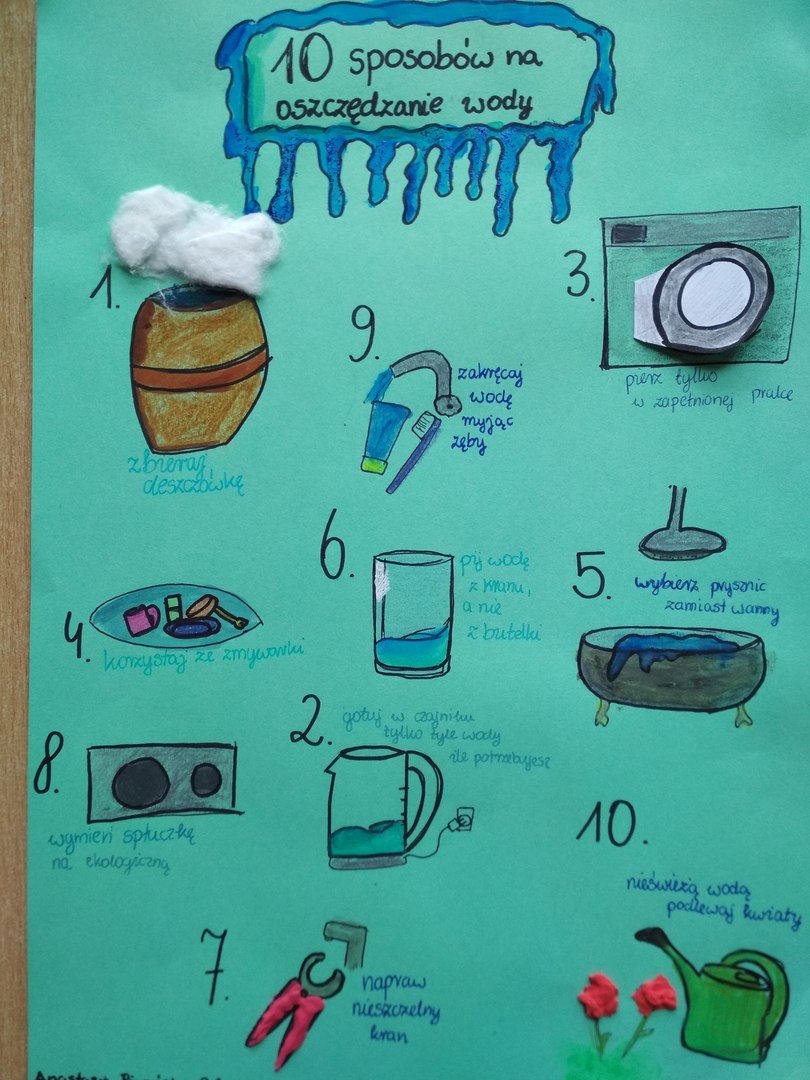 10 sposobów na
oszczędzanie wody
1.
zbieraj
deszczówkę
9.
zakręcaj
wodę
myjąc
zęby
3.
pierz tylko
w zapełnionej pralce
4.
korzystaj ze zmywarki
6.
pij wodę
z kranu,
a nie
z butelki
5.
wybierz prysznic
zamiast wanny
8.
wymień spłuczkę
na ekologiczną
2.
gotuj w czajniku
tylko tyle wody
ile potrzebujesz
10.
nieświeżą wodą
podlewaj kwiaty
7.
napraw
nieszczelny
kran